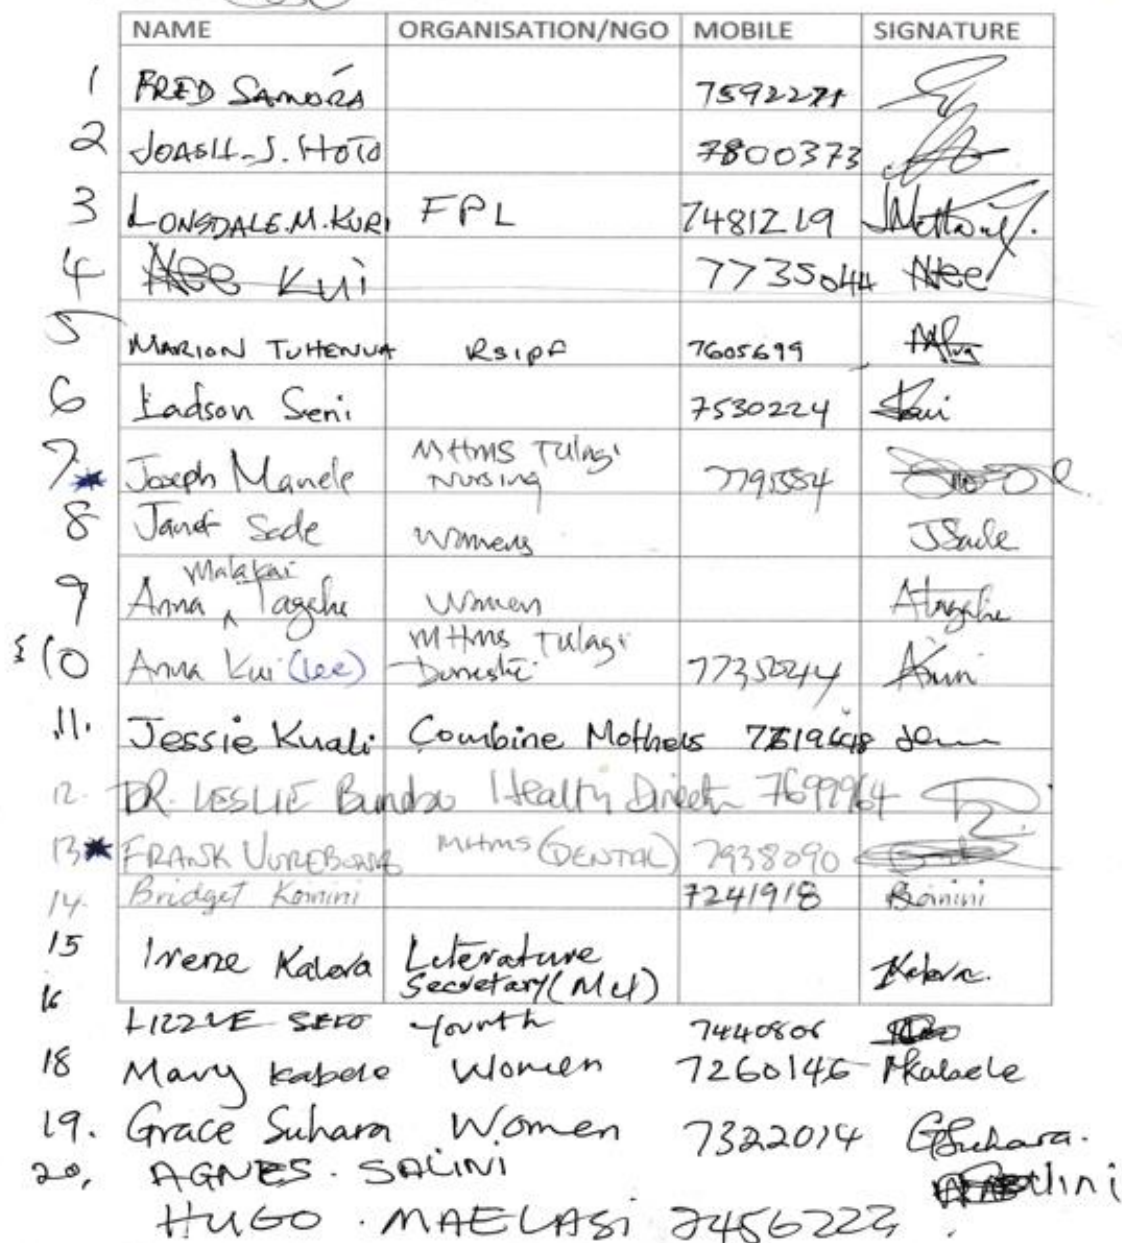 NAME ORGANISATION/NGO MOBILE SIGNATURE
1 FRED SAMORA 7592271
2 JOASH.J.HOTO 7800373
3 LONSDALE.M.KURI FPL 7481219
4 Kui 7735044 Nee
5 MARION TUHENUA RSIPF 7605699
6 Ladson Seni 7530224
7 Joseph Manele MHMS Tulagi Nursing 7795584
8 Janet Sade Womens JSade
9 Anna Malakai Tagehe Women Atagehe
10 Anna Kui (Lee) MHMS Tulagi Domestic 7735044
11. Jessie Kuali Combine Mothers
12. DR. LESLIE Health Director 7699964
13 FRANK MHMS (DENTAL) 7938090
14. Bridget Komini 7241918 Komini
15 Irene Kalova Literature Secretary (MU) Kalova.
16 LIZZIE SETO Youth 7440806
18 Mary Kabele Women 7260146 Mkabele
19. Grace Suhara Women 7322014 GSuhara.
20, AGNES. SALINI
HUGO. MAELASI 7456222